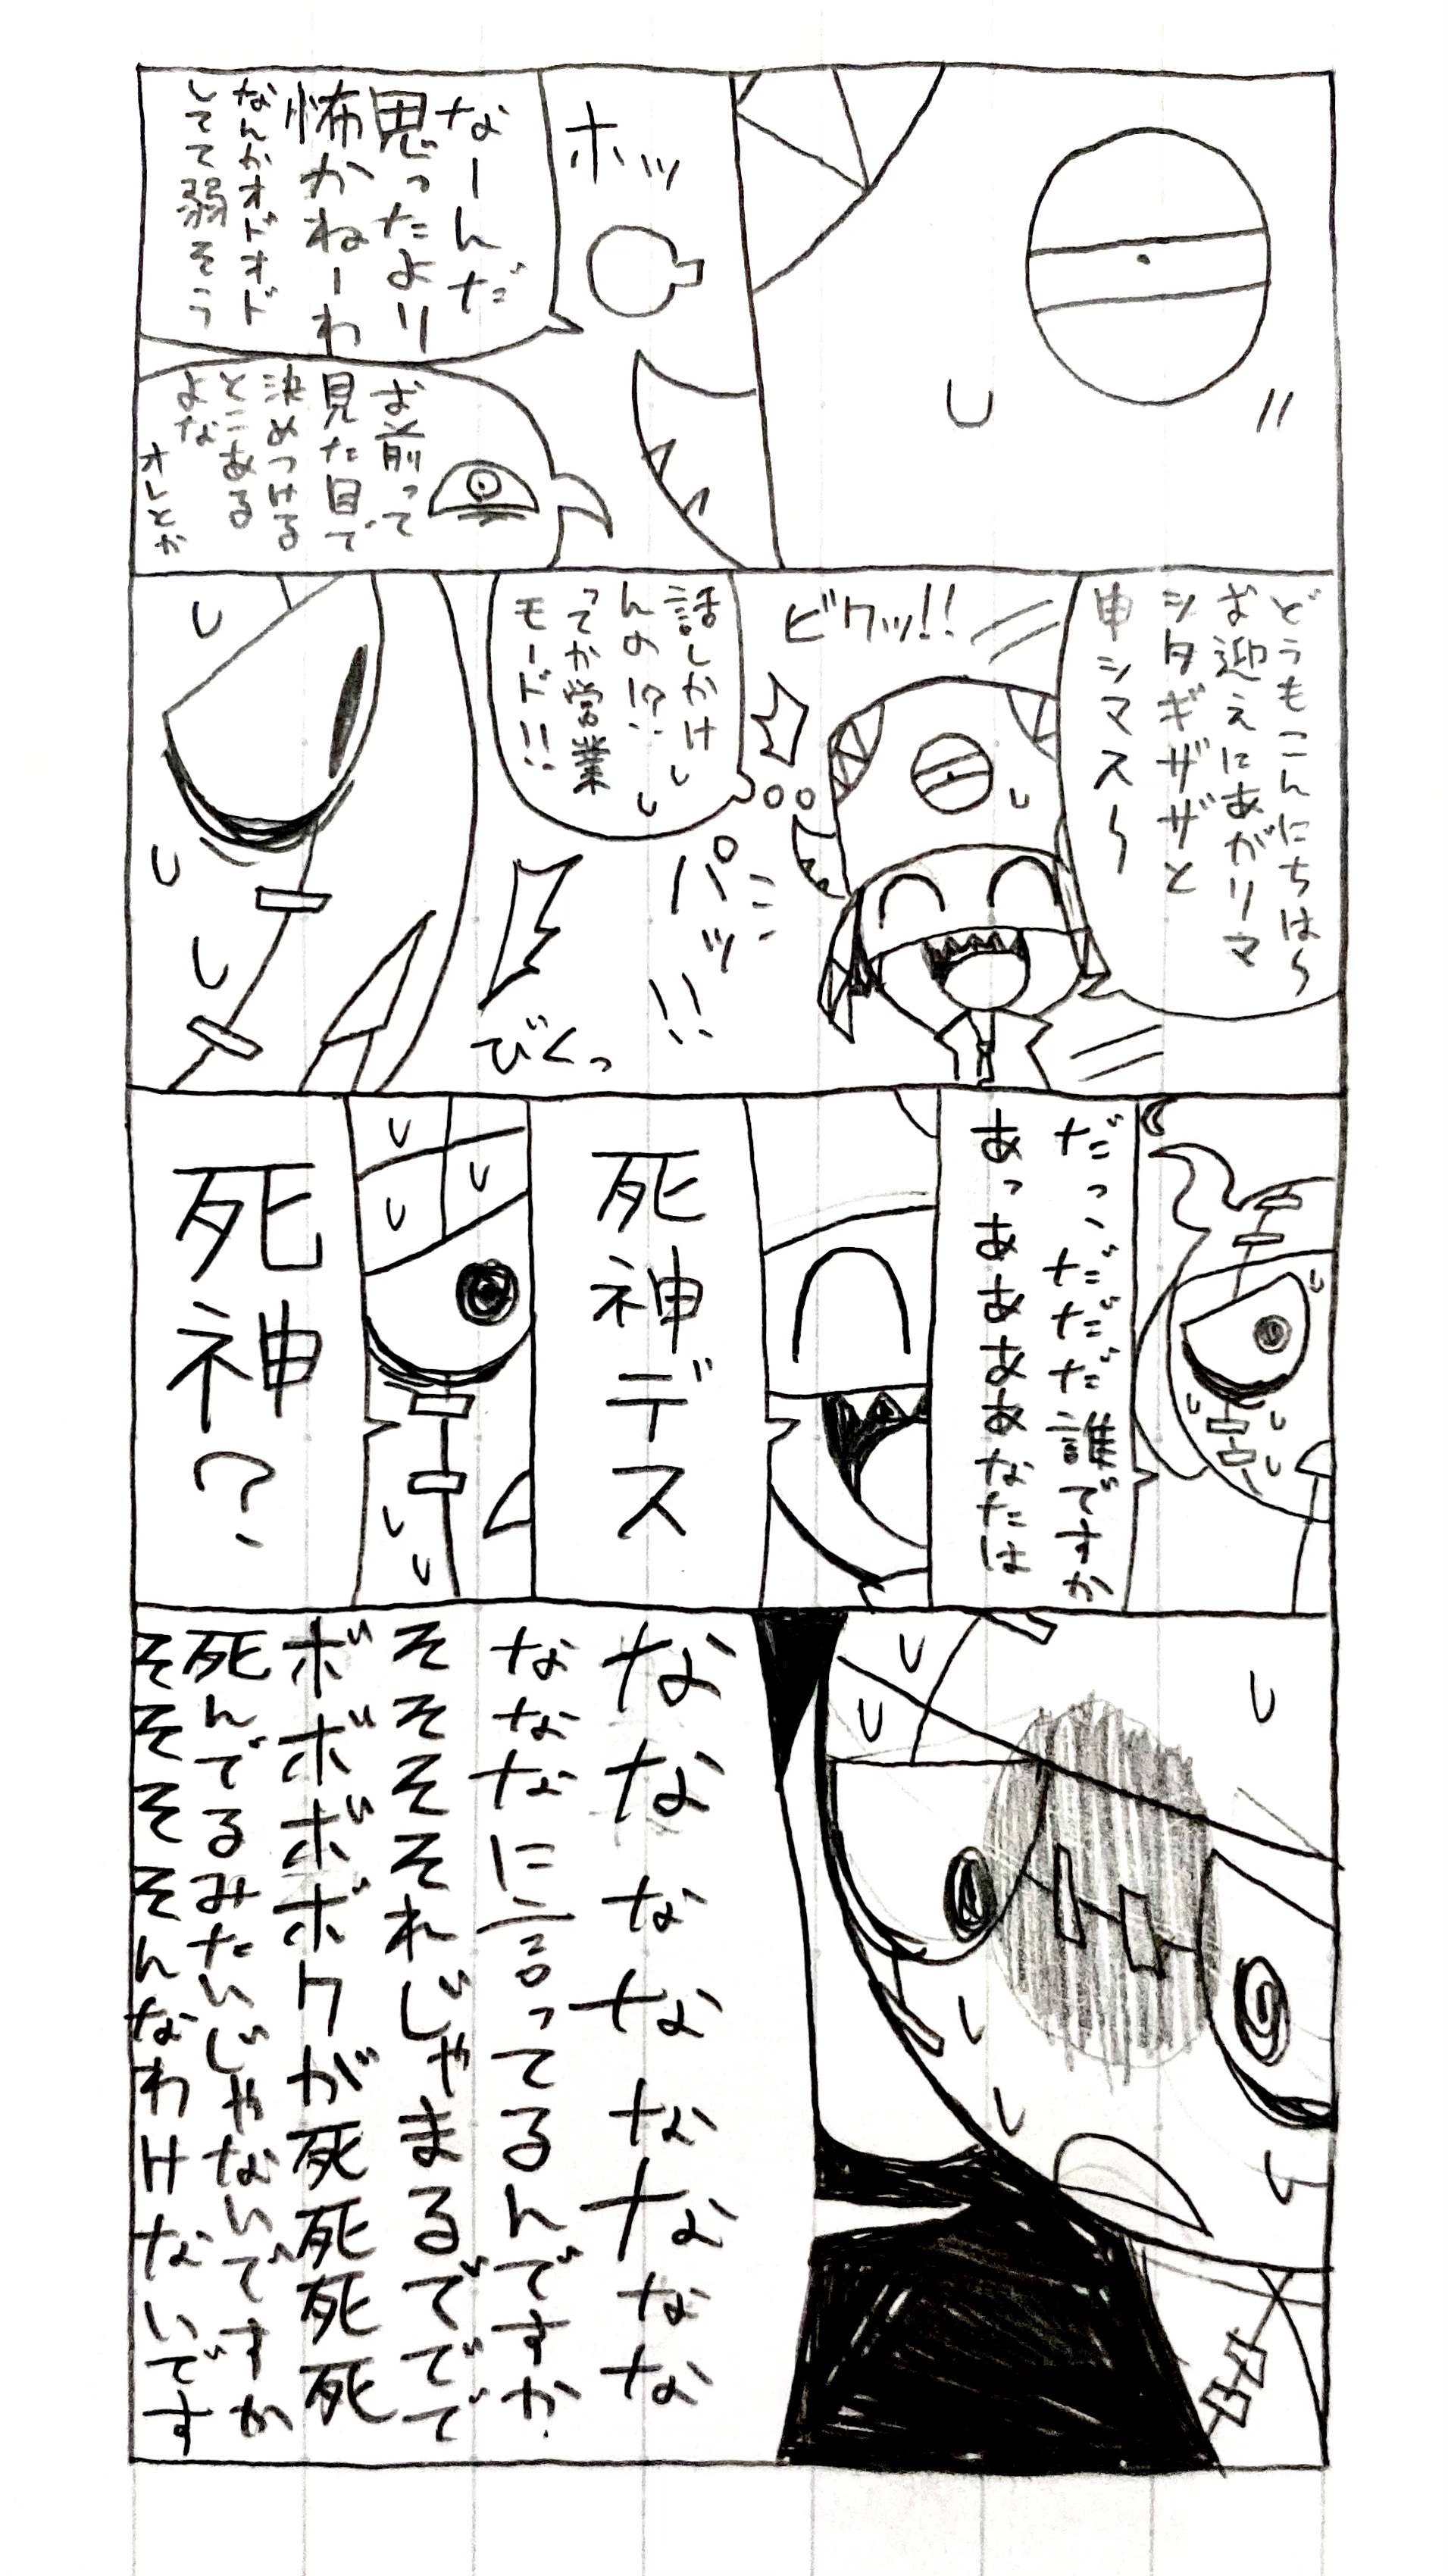 ホッ
なーんだ
思ったより
怖かねーわ
なんかオドオド
してて弱そう
お前って
見た目で
決めつける
とこある
よな
オレとか
どうもこんにちは〜
お迎えにあがりマ
シタギザザザと
申シマス〜
ビクッ!!
話しかけし
んの!?
ってか営業
モード!!
パッ!!
びくっ
だっ、だだだ誰ですか
あっああああなたは
死神デス
死神?
なななななななな
なななに言ってるんですか
そそそそれじゃまるででで
ボボボボクが死死死死
死んでるみたいじゃないですか
そそそそんなわけないです